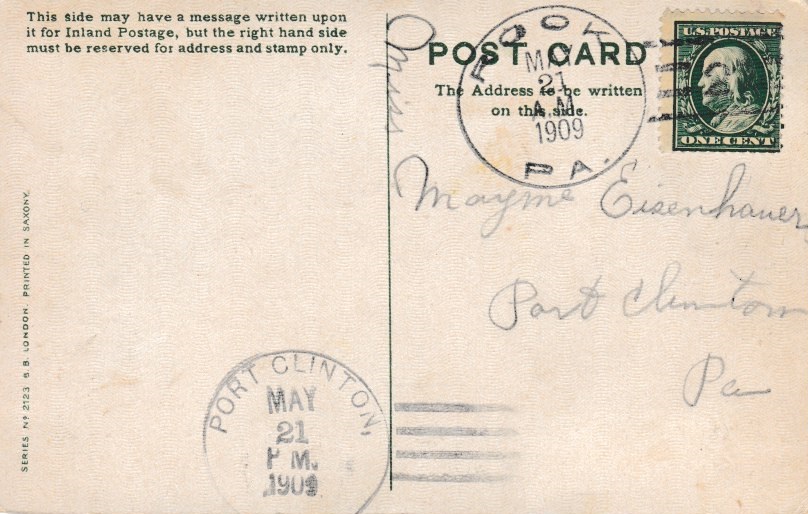 This side may have a message written upon
it for Inland Postage, but the right hand side
must be reserved for address and stamp only.
POST CARD
The Address to be written
on this side.
ROOK
MAY
21
A.M.
1909
PA.
U.S. POSTAGE
ONE CENT
Miss
Mayme Eisenhauer
Port Clinton
Pa
PORT CLINTON,
MAY
21
P M.
1909
SERIES Nº 2123 B. B. LONDON. PRINTED IN SAXONY.